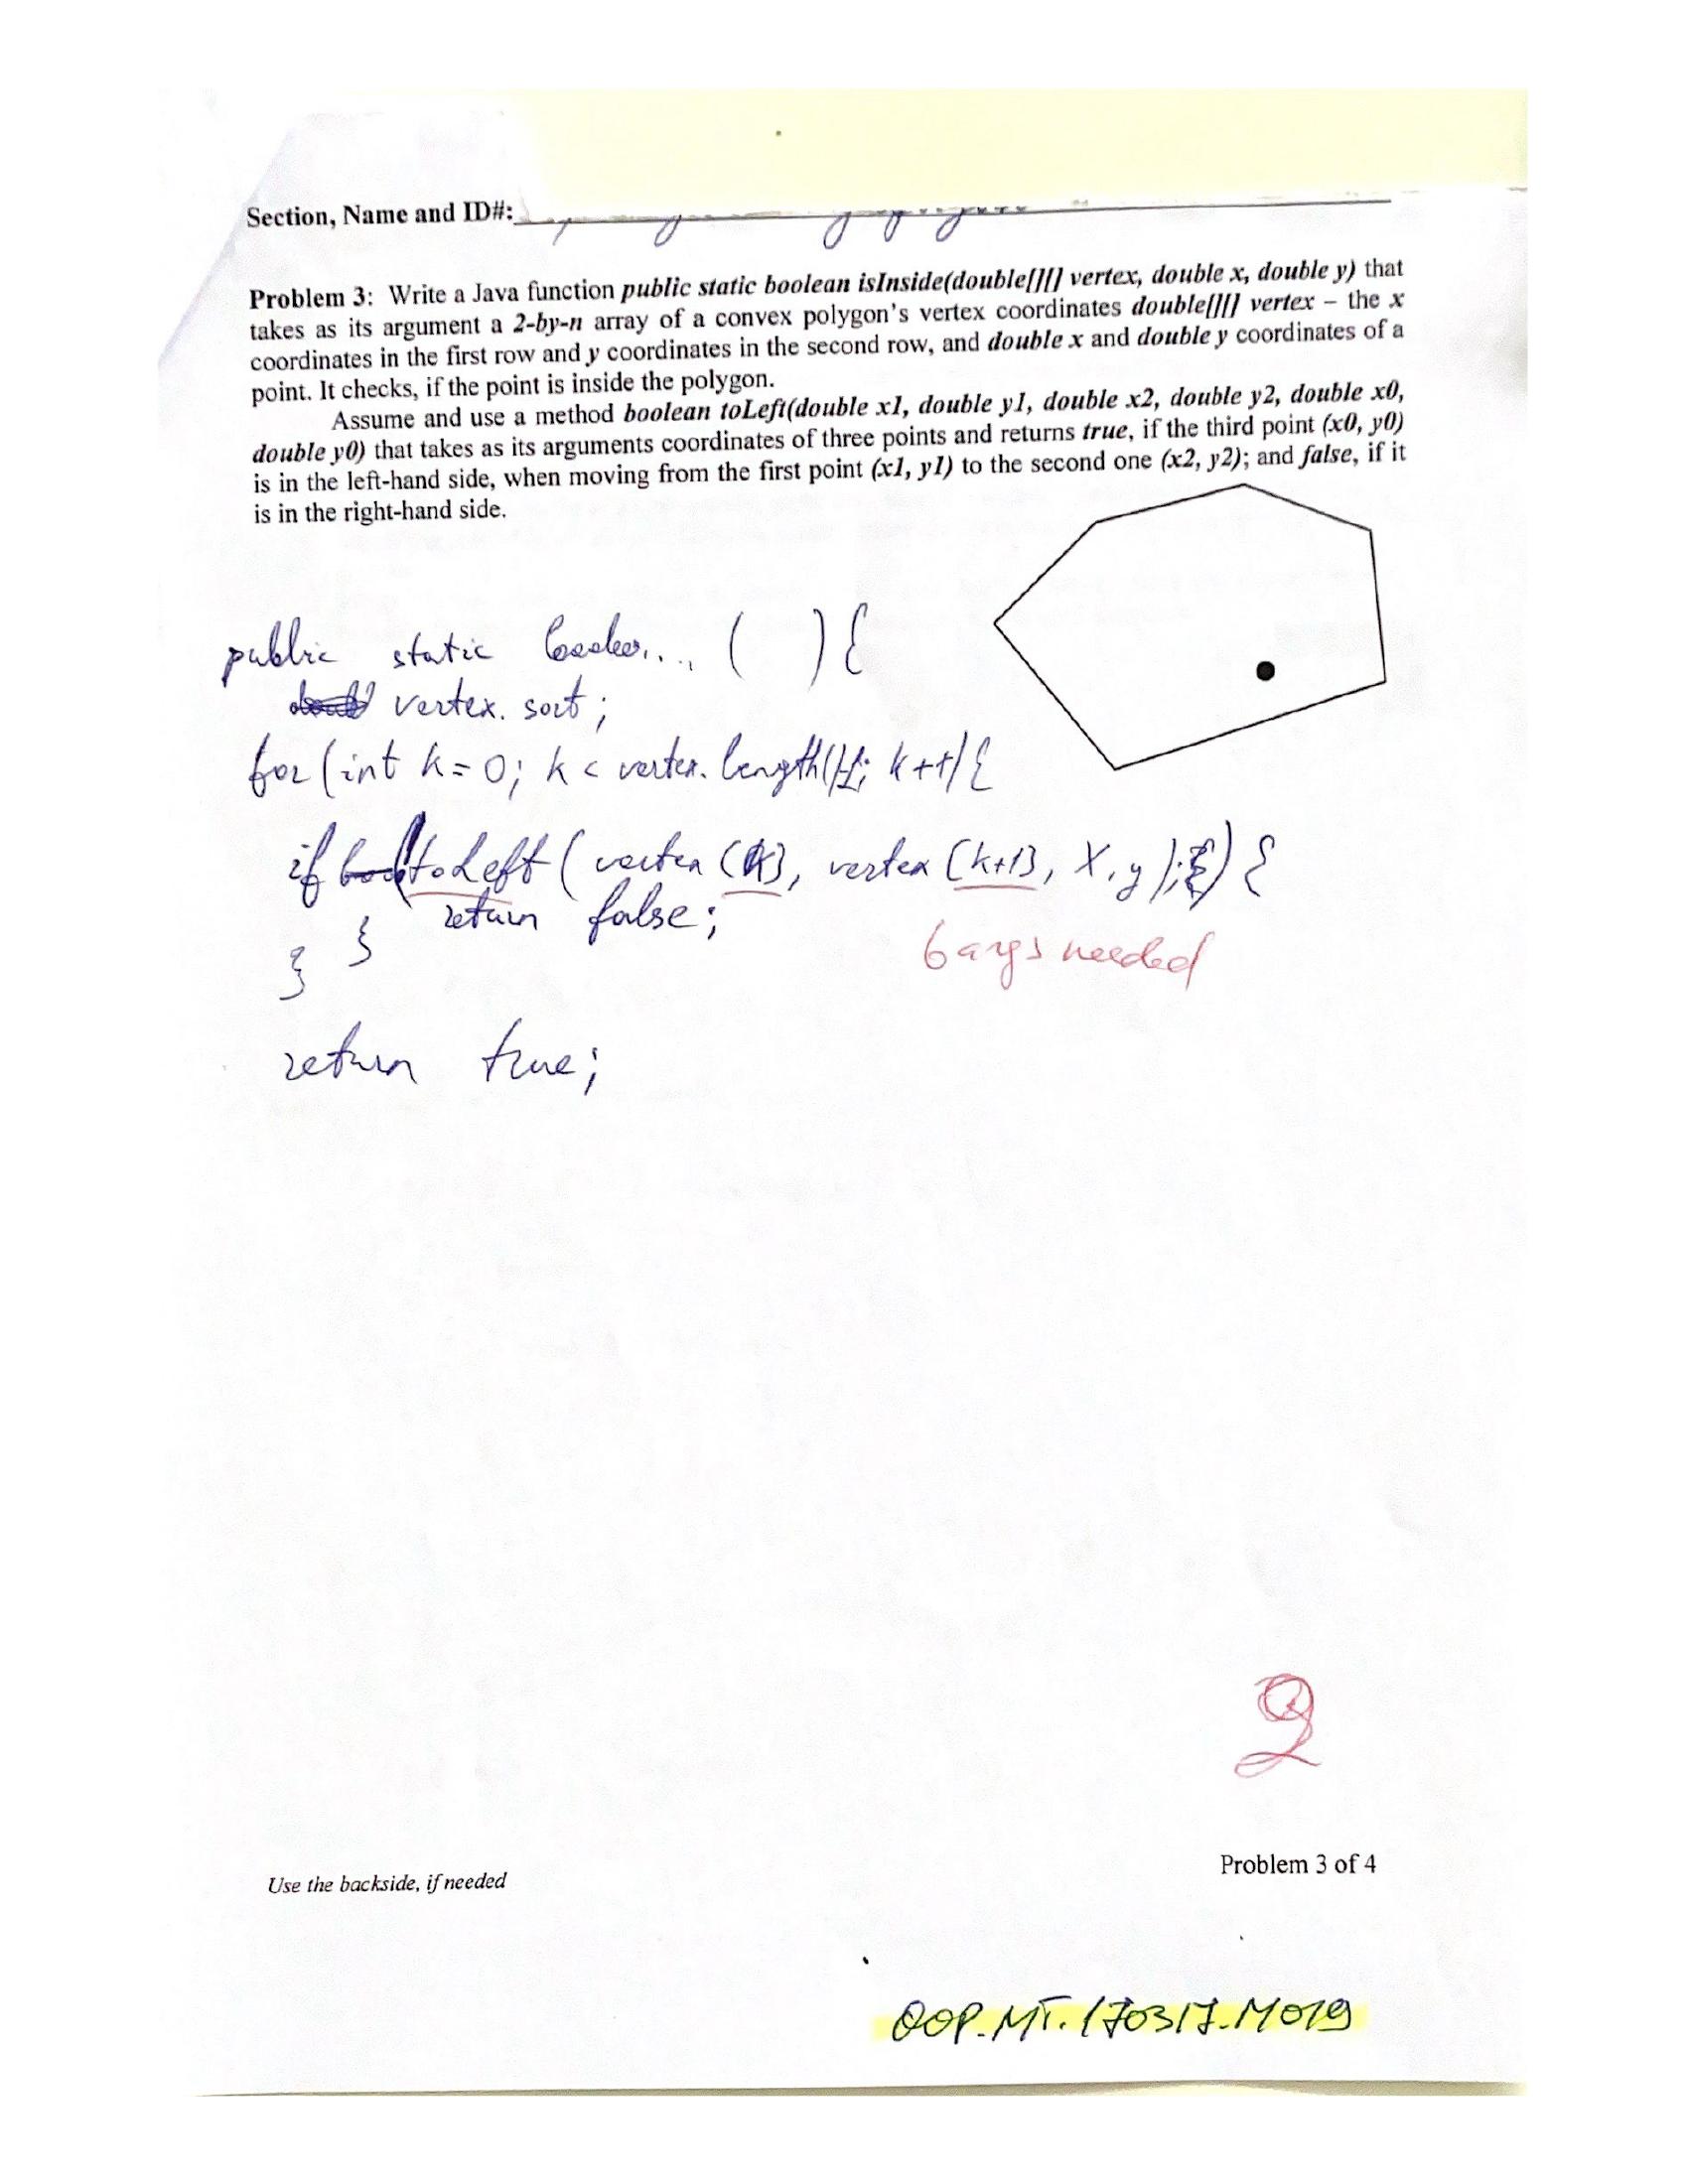 Section, Name and ID#:
Problem 3: Write a Java function public static boolean isInside(double[][] vertex, double x, double y) that
takes as its argument a 2-by-n array of a convex polygon's vertex coordinates double[][] vertex – the x
coordinates in the first row and y coordinates in the second row, and double x and double y coordinates of a
point. It checks, if the point is inside the polygon.
Assume and use a method boolean toLeft(double x1, double y1, double x2, double y2, double x0,
double y0) that takes as its arguments coordinates of three points and returns true, if the third point (x0, y0)
is in the left-hand side, when moving from the first point (x1, y1) to the second one (x2, y2); and false, if it
is in the right-hand side.
public static ( ) {
vertex. sort;
for (int k = 0; k < vertex. length()-1; k++) {
if (!toLeft ( vertex [k], vertex [k+1], x, y );) {
return false;
}
}
6 args needed
return true;
2
Problem 3 of 4
Use the backside, if needed
OOP.MT.170317.M019